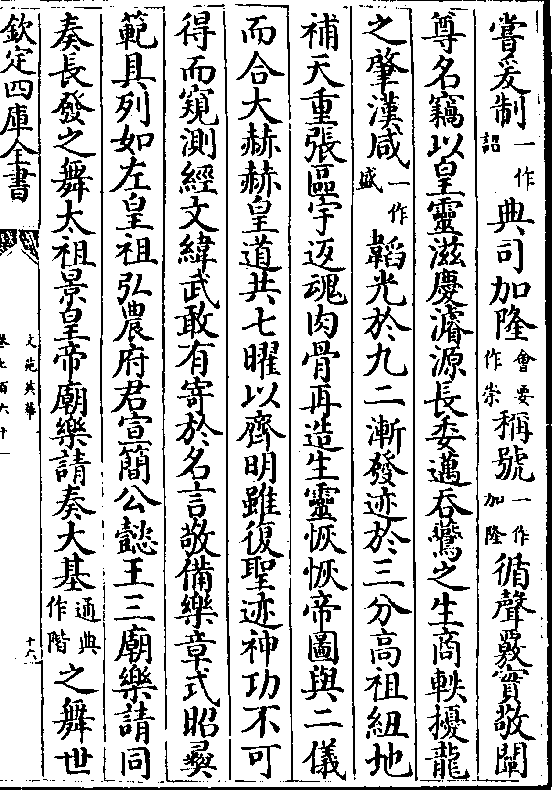 嘗爰制一作詔典司加隆會要作崇稱號一作加隆循聲覈實敬闡
尊名竊以皇靈滋慶濬源長委邁吞鷰之生商軼擾龍
之肇漢咸一作盛韜光於九二漸發迹於三分高祖紐地
補天重張區宇返魂肉骨再造生靈恢恢帝圖與二儀
而合大赫赫皇道共七曜以齊明雖復聖迹神功不可
得而窺測經文緯武敢有寄於名言敬備樂章式昭彛
範具列如左皇祖弘農府君宣簡公懿王三廟樂請同
奏長發之舞太祖景皇帝廟樂請奏大基通典作階之舞世
欽定四庫全書
文苑英華
卷七百六十
十六